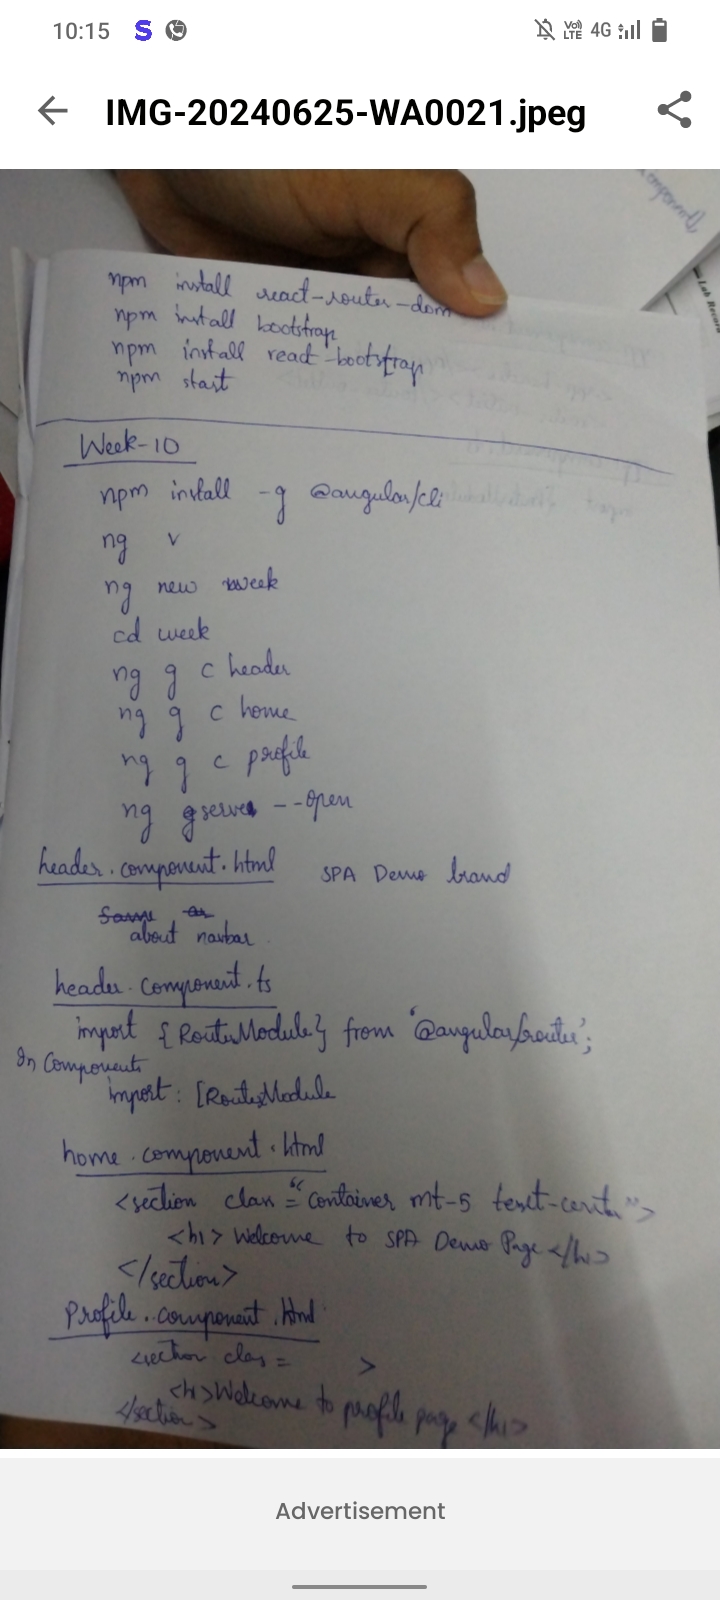 10:15 S Vo) LTE 4G
IMG-20240625-WA0021.jpeg
npm install react-router-dom
npm install bootstrap
npm install react-bootstrap
npm start
Week-10
npm install -g @angular/cli
ng v
ng new week
cd week
ng g c header
ng g c home
ng g c profile
ng serve --open
header.component.html SPA Demo brand
Same as
about navbar
header.component.ts
import {RouterModule} from '@angular/router';
In Components
import: [RouterModule
home.component.html
<section class="container mt-5 text-center">
<h1> Welcome to SPA Demo Page </h1>
</section>
Profile.component.html
<section class= >
<h1>Welcome to profile page </h1>
</section>
Advertisement